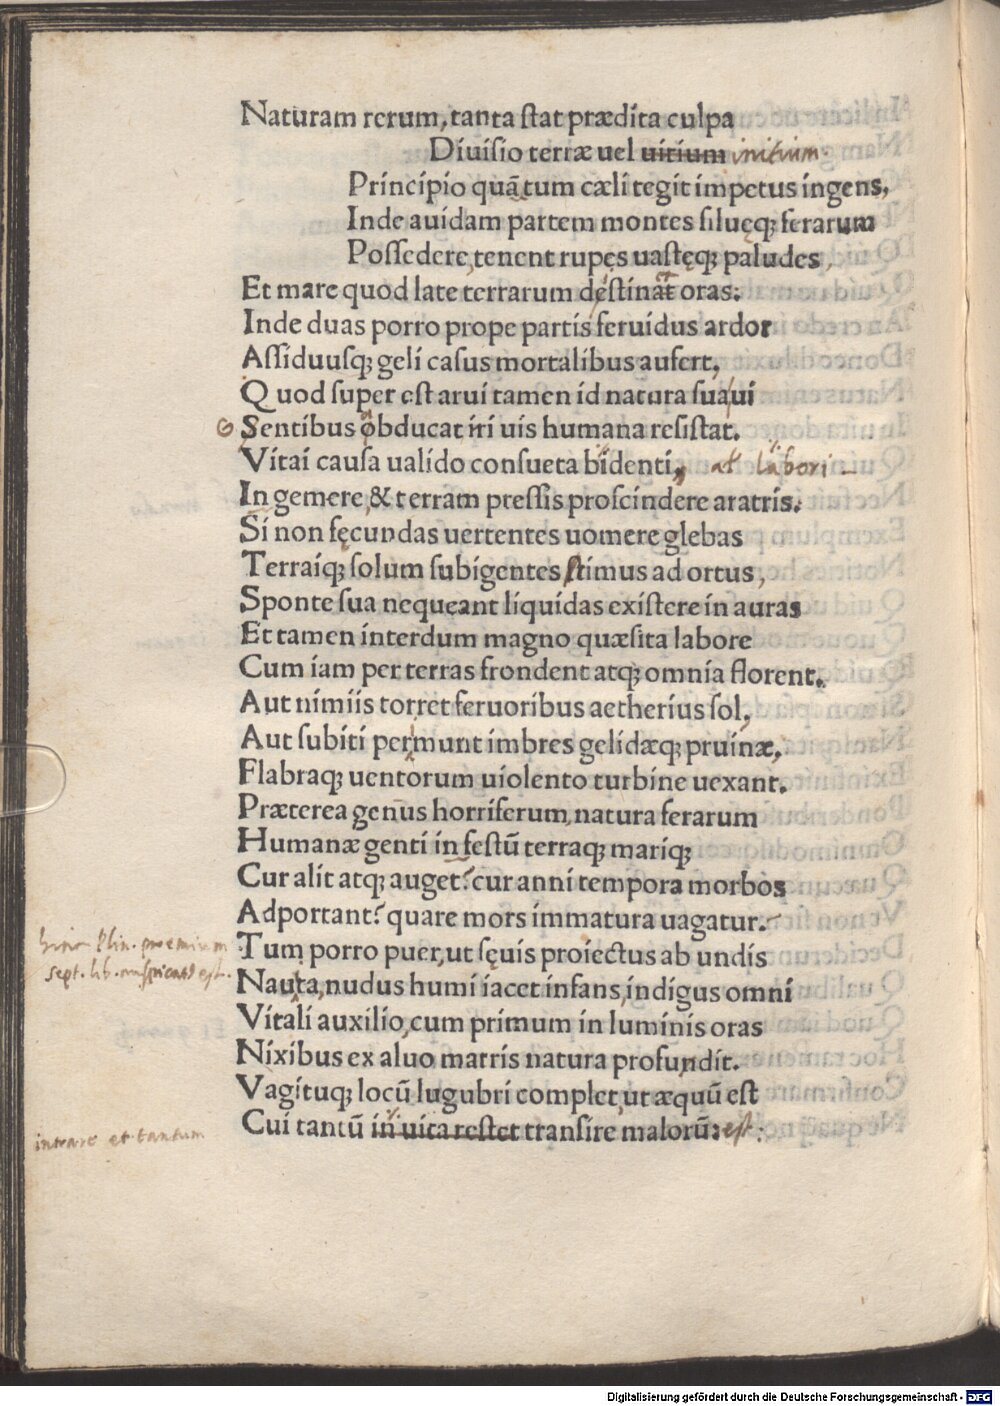 Naturam rerum, tanta ſtat prædita culpa
Diuiſio terræ uel uitium initium.
Principio quãtum cæli tegit impetus ingens,
Inde auidam partem montes ſiluęq; ferarum
Poſſedere, tenent rupęs uaſtęq; paludes,
Et mare quod late terrarum deſtinat oras.
Inde duas porro prope partis feruidus ardor
Aſſiduuſq; geli caſus mortalibus aufert.
Quod ſuper eſt arui tamen id natura ſua ui
Sentibus obducat iri uis humana reſiſtat.
Vitai cauſa ualido conſueta bidenti, at labori
In gemere, & terram preſſis proſcindere aratris.
Si non fęcundas uertentes uomere glebas
Terraiq; ſolum ſubigentes ſtimus ad ortus,
Sponte ſua nequeant liquidas exiſtere in auras
Et tamen interdum magno quæſita labore
Cum iam per terras frondent atq; omnia florent.
Aut nimiis torret feruoribus aetherius ſol,
Aut ſubiti permunt imbres gelidæq; pruinæ,
Flabraq; uentorum uiolento turbine uexant.
Præterea genus horriferum, natura ferarum
Humanæ genti in feſtũ terraq; mariq;
Cur alit atq; auget? cur anni tempora morbos
Adportant? quare mors immatura uagatur.
hinc Plin. proemium
sept. lib. auspicatus est.
Tum porro puer, ut ſęuis proiectus ab undis
Nauta, nudus humi iacet infans, indigus omni
Vitali auxilio, cum primum in luminis oras
Nixibus ex aluo matris natura profundit.
Vagituq; locũ lugubri complet, ut æquũ eſt
intrare et tantum
Cui tantũ in uita reſtet tranſire malorũ: est:
Digitalisierung gefördert durch die Deutsche Forschungsgemeinschaft - DFG